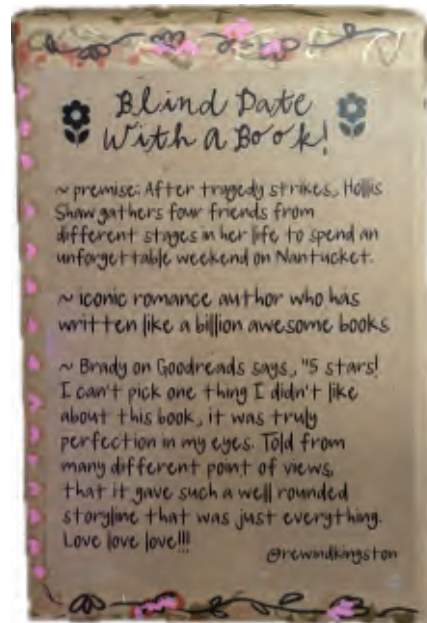 Blind Date
With A Book!
~ premise: After tragedy strikes, Hollis
Shaw gathers four friends from
different stages in her life to spend an
unforgettable weekend on Nantucket.
~ iconic romance author who has
written like a billion awesome books
~ Brady on Goodreads says, "5 stars!
I can't pick one thing I didn't like
about this book, it was truly
perfection in my eyes. Told from
many different point of views,
that it gave such a well rounded
storyline that was just everything.
Love love love!!!
@rewindkingston